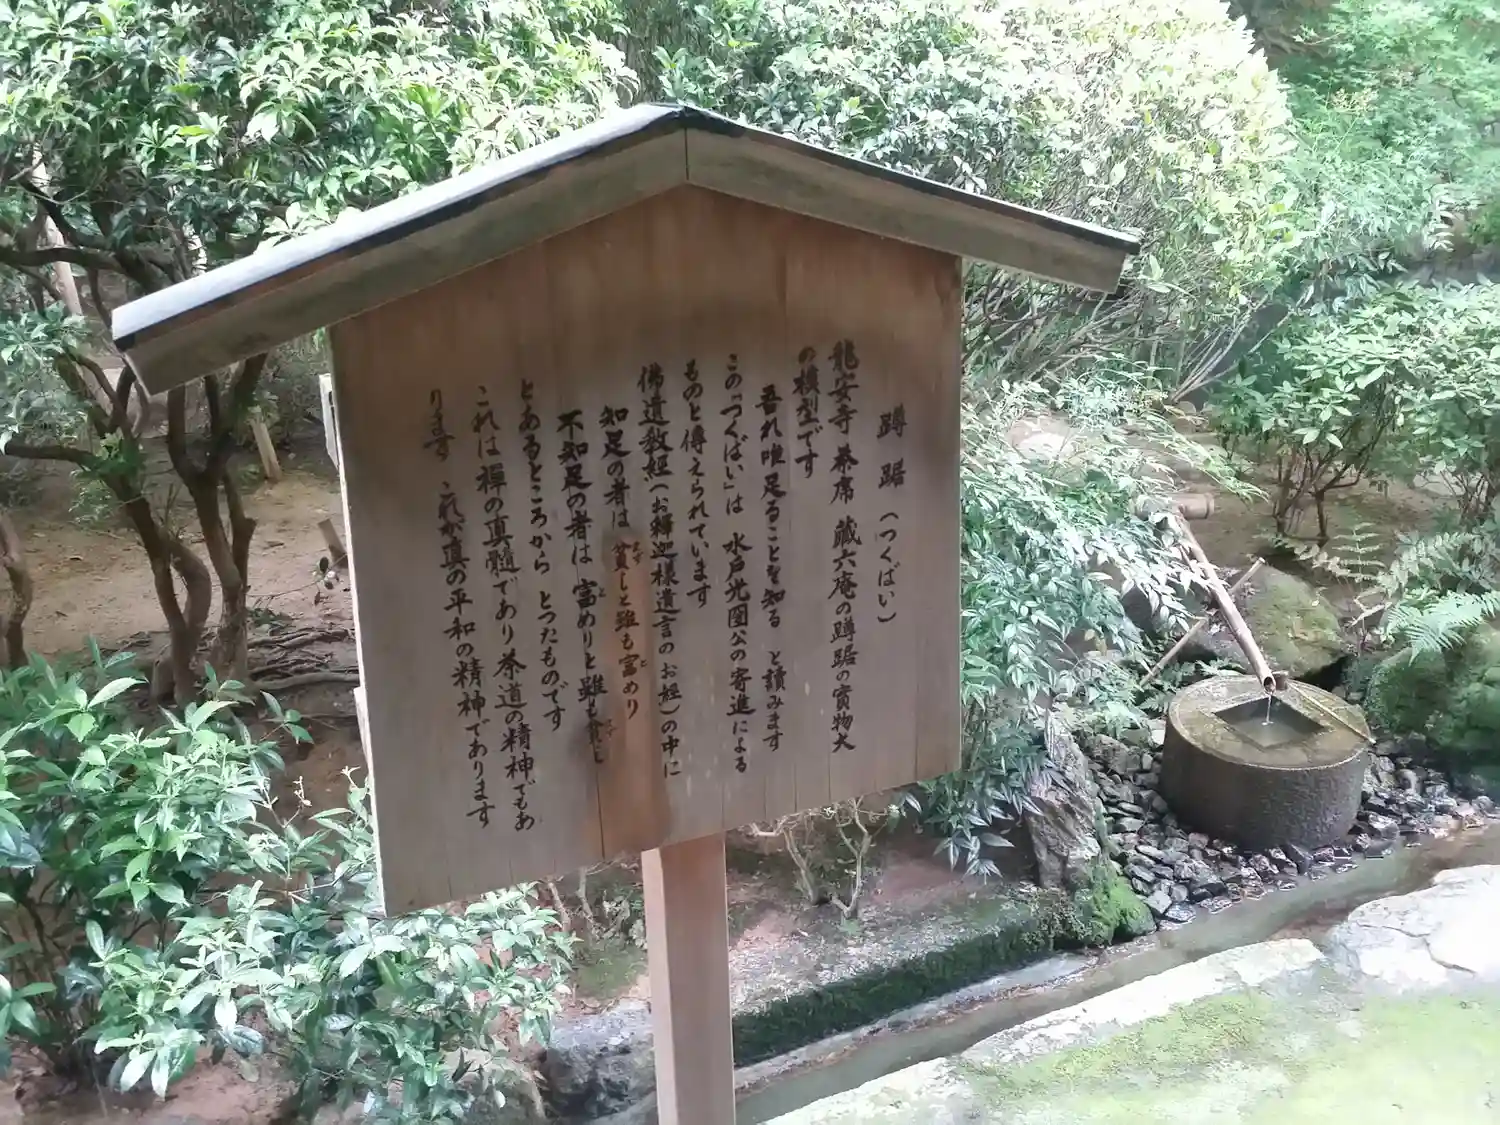 蹲踞(つくばい)
龍安寺 茶席 蔵六庵の蹲踞の實物大
の模型です
吾れ唯足ることを知る と讀みます
この「つくばい」は 水戸光圀公の寄進による
ものと傳えられています
佛遺教経(お釋迦様遺言のお経)の中に
知足の者は 貧しと雖も富めり
不知足の者は 富めりと雖も貧し
とあるところから とつたものです
これは禪の真髓であり茶道の精神でもあ
ります これが真の平和の精神であります